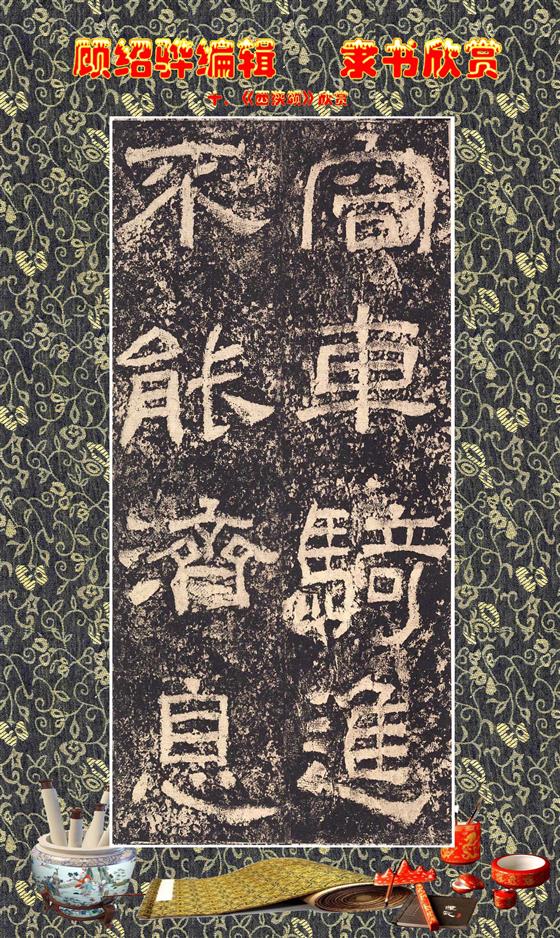 顾绍骅编辑 隶书欣赏
十、《西狭颂》欣赏
容車騎進
不能濟息